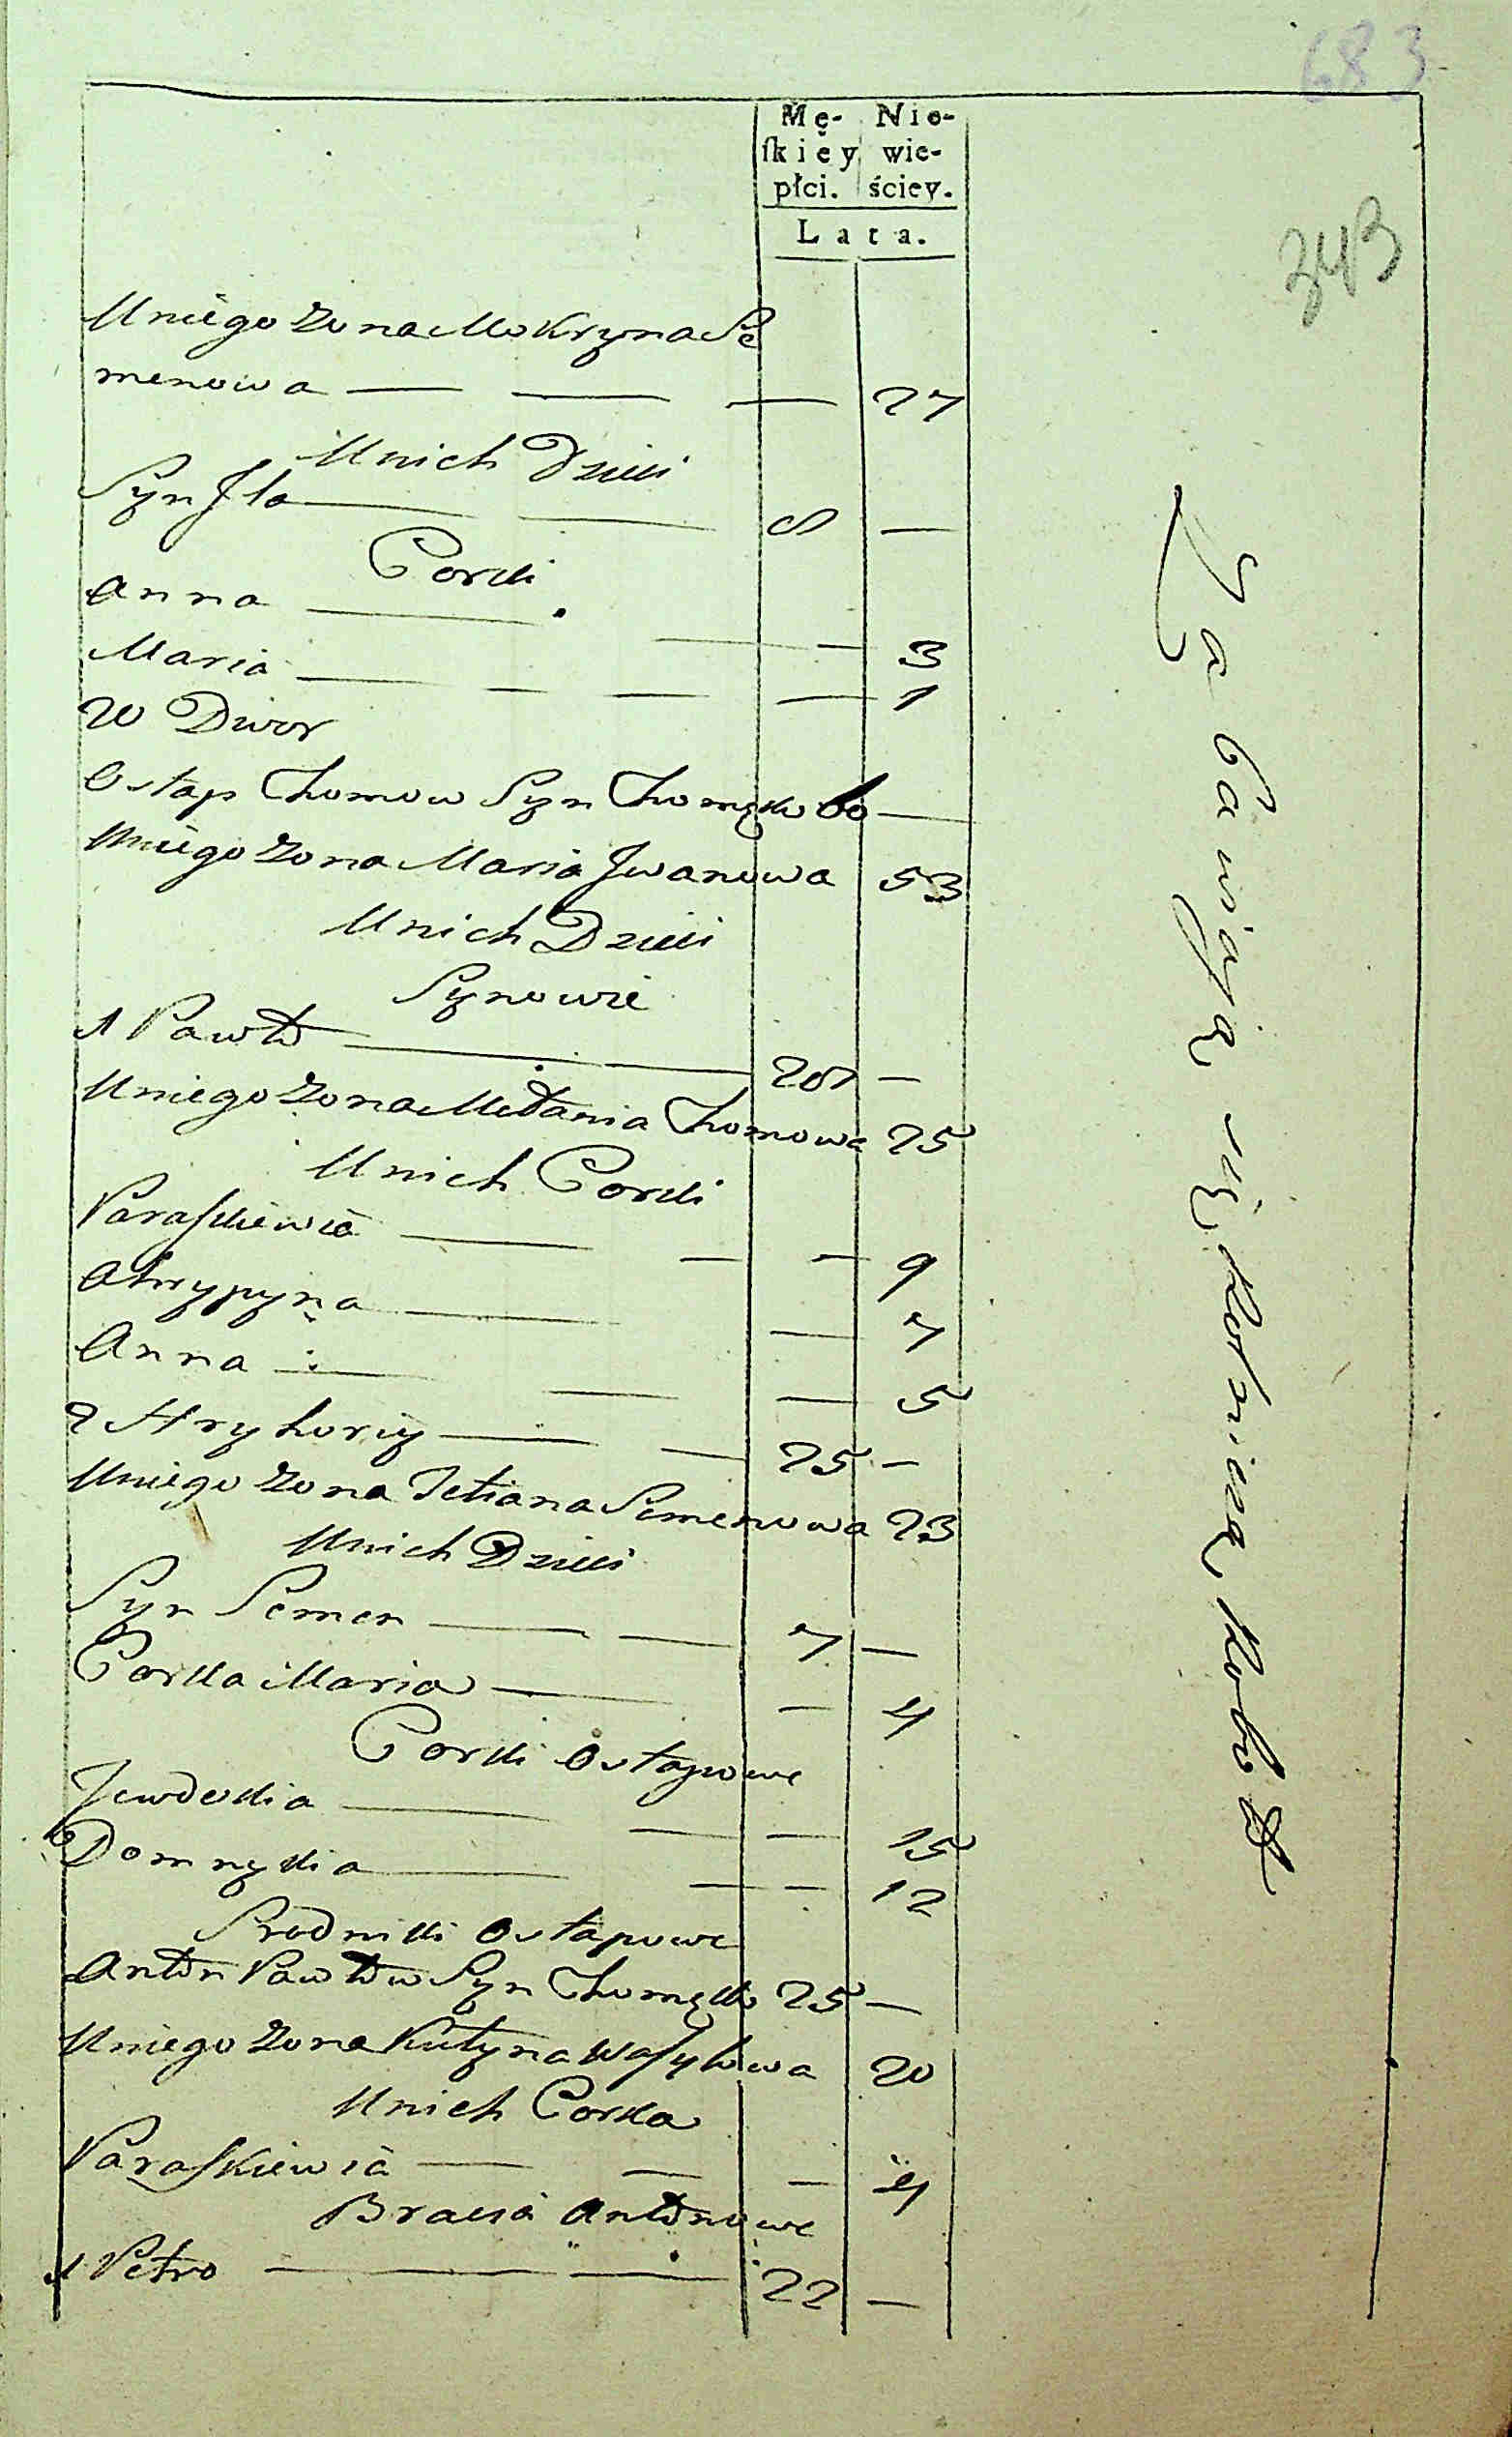 683
Mę- Nie-
ſkiey wie-
płci. ściey.
Lata.
343
U niego Zona Mokryna Se
menowa — — — 27
U nich Dzieci
Syn Jla — — 8 —
Corki
Anna — — — 3
Maria — — — — 1
W Dwor
Ostap Chomow Syn Chomęko 60 —
U niego Zona Maria Jwanowa 53
U nich Dzieci
Synowie
1 Pawło — — 28 —
U niego Zona Mełania Chomowa 25
U nich Corki
Paraſkiewia — — — 9
Ahrypyna — — 7
Anna — — — 5
2 Hryhoriy — — 25 —
U niego Zona Tetiana Semenowa 23
U nich Dzieci
Syn Semen — — 7 —
Corka Maria — — 4
Corki Ostapowe
Jewdokia — — — 15
Domnykia — — — 12
Ostapowe
Anton Pawłow Syn Chomęko 25 —
U niego Zona Kutyna Waſylowa 20
U nich Corka
Paraſkiewia — — — 4
Bracia Antonowe
1 Petro — — — 22 —
Zabawiaią się Rolniczą Robotą